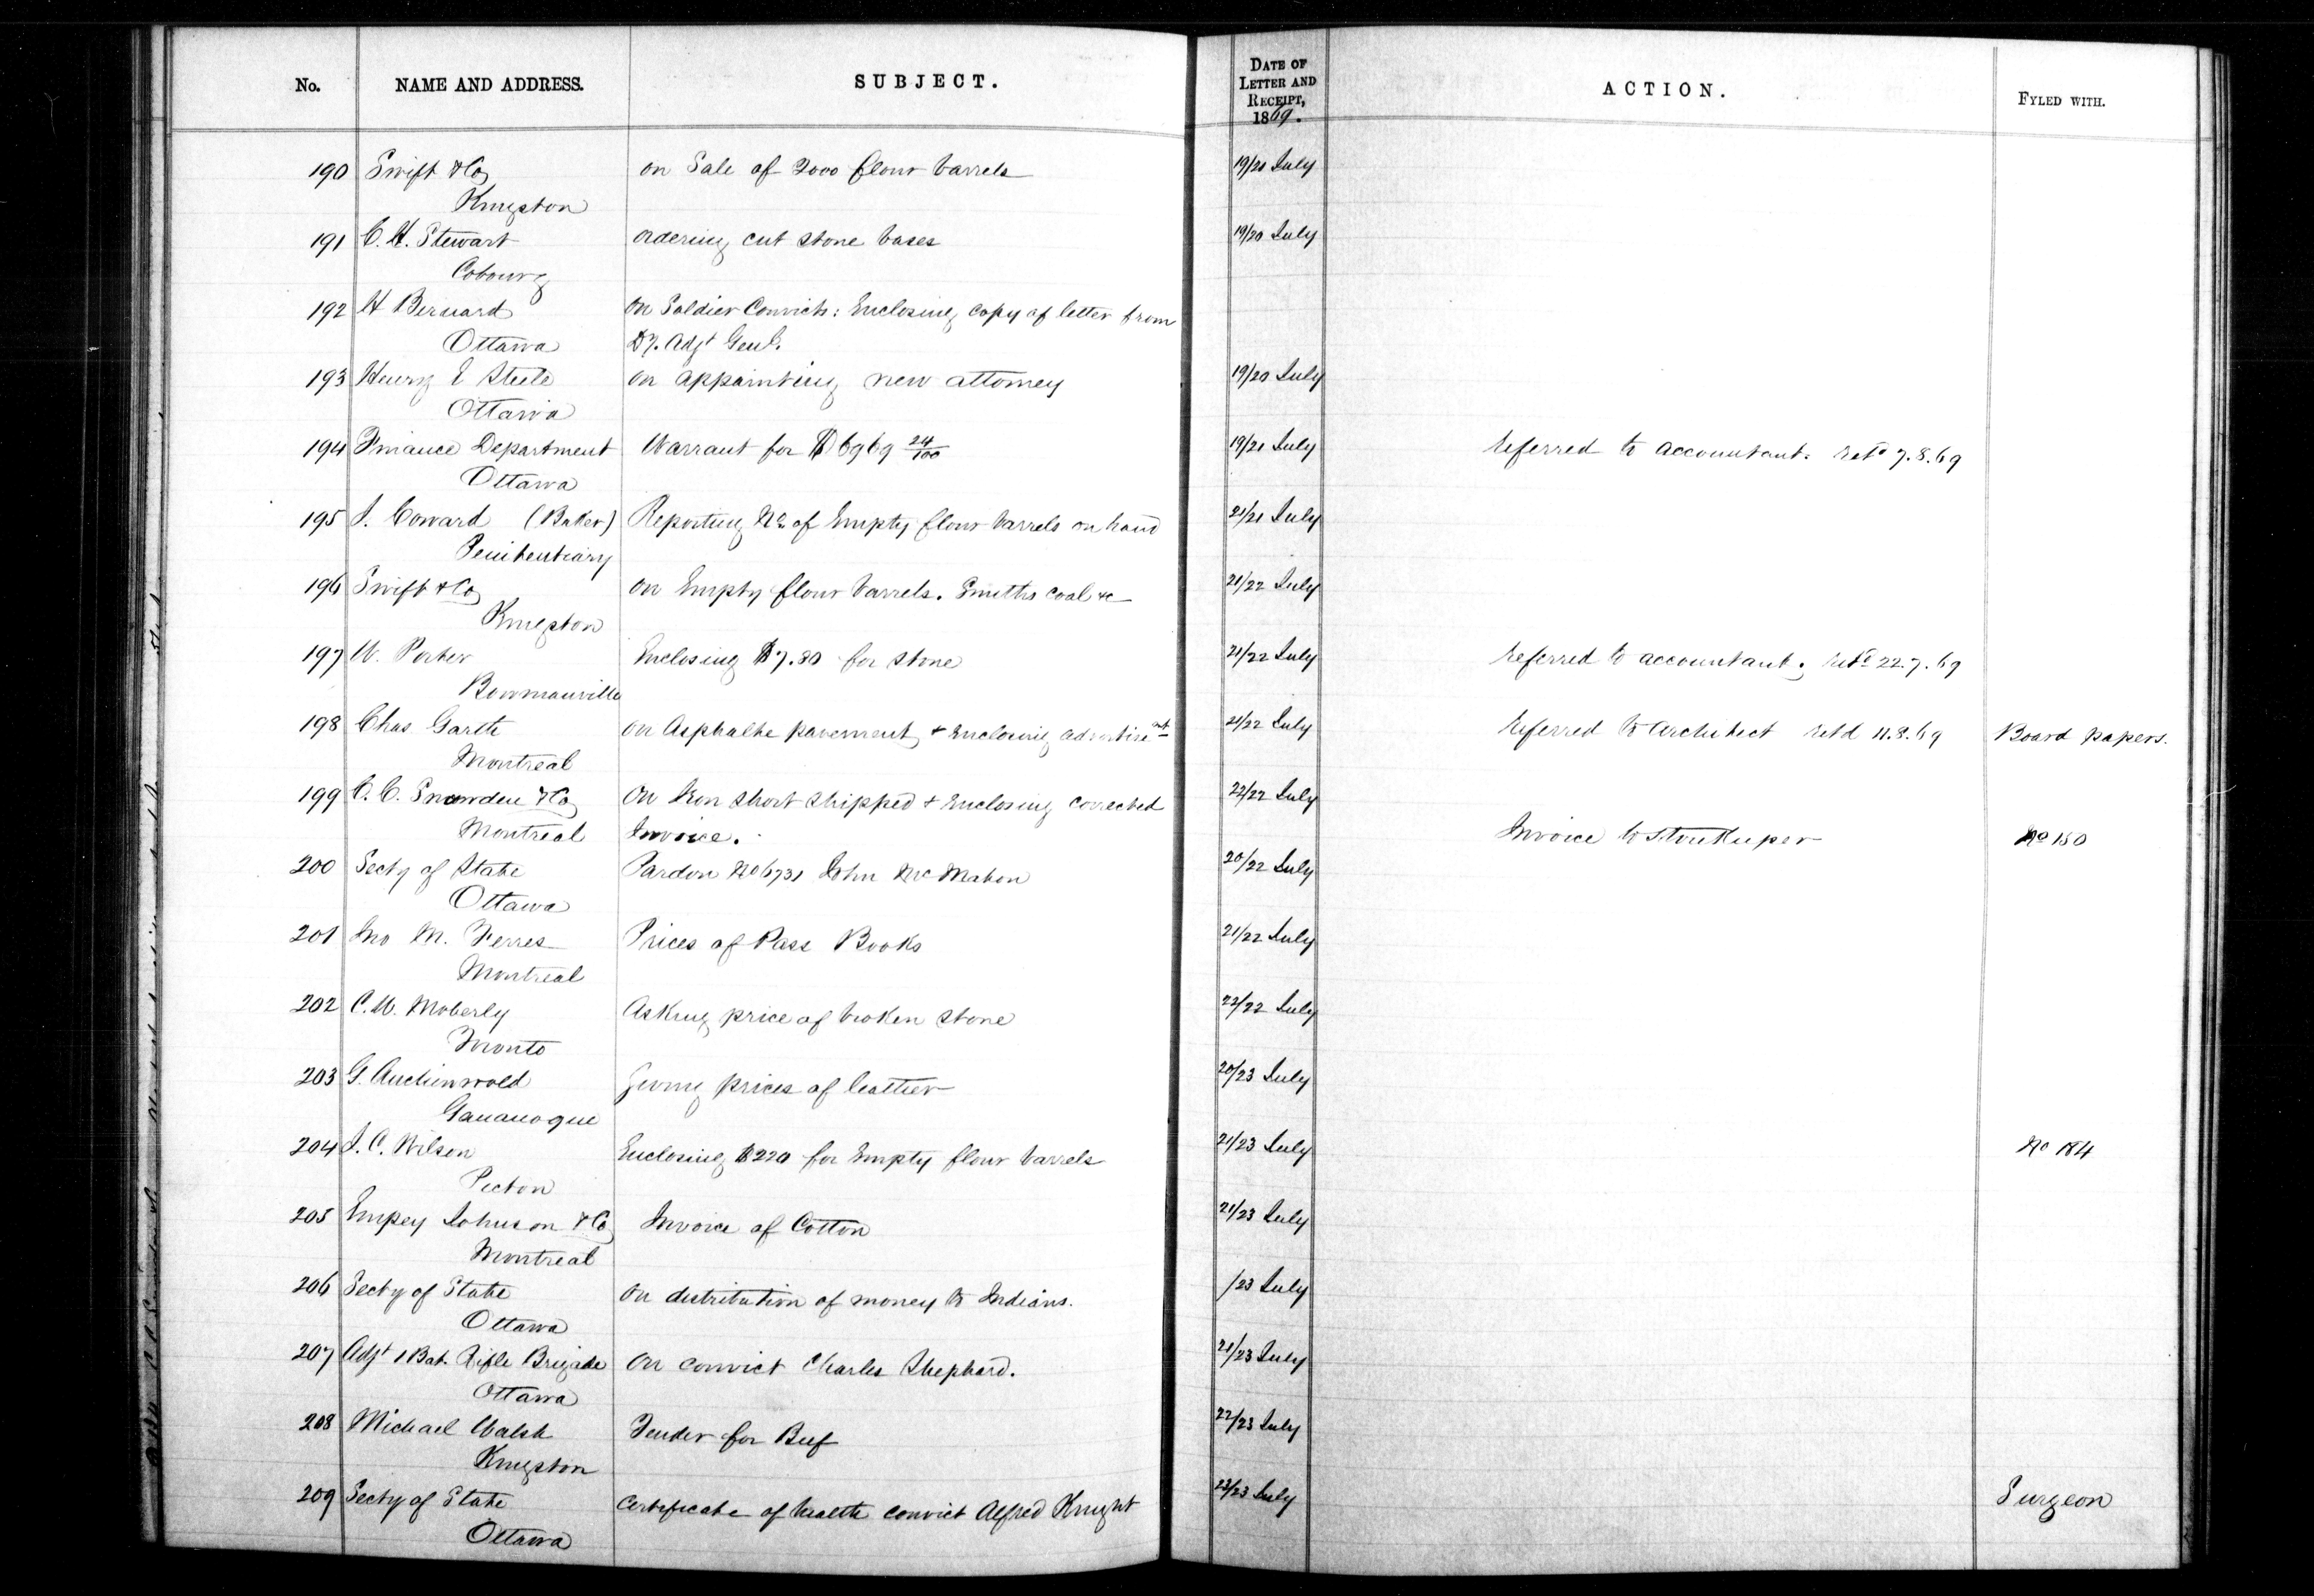 No. NAME AND ADDRESS. SUBJECT. DATE OF LETTER AND RECEIPT, 1869. ACTION. FYLED WITH.
190 Swift & Co on Sale of 2000 flour barrels 19/20 July
Kingston
191 C. H. Stewart ordering cut stone bases 19/20 July
Cobourg
192 H Bernard on Soldier Convicts: Enclosing copy of letter from
Ottawa Dy. Adjt Genl.
193 Henry E Steele on appointing new attorney 19/20 July
Ottawa
194 Finance Department Warrant for $6969 24/100 19/21 July referred to accountant. retd 7.8.69
Ottawa
195 J. Coward (Baker) Reporting No. of Empty flour barrels on hand 21/21 July
Penitentiary
196 Swift & Co on Empty flour barrels. Smiths coal &c 21/22 July
Kingston
197 W. Porter Enclosing $7.80 for stone 21/22 July referred to accountant, retd 22.7.69
Bowmanville
198 Chas Garth on Asphalte pavement & enclosing advertisemt 21/22 July referred to Architect retd 11.8.69 Board papers.
Montreal
199 C. C. Snowden & Co on Iron short shipped & enclosing corrected 22/22 July
Montreal Invoice. Invoice to Storekeeper No 150
200 Secty of State Pardon No 6731 John McMahon 20/22 July
Ottawa
201 Jno M. Ferres Prices of Pass Books 21/22 July
Montreal
202 C. W. Moberly Asking price of broken stone 22/22 July
Toronto
203 G. Auchinvoled Giving prices of leather 20/23 July
Gananoque
204 J. C. Wilson Enclosing $220 for Empty flour barrels 21/23 July No 184
Picton
205 Empey Johnson & Co Invoice of Cotton 21/23 July
Montreal
206 Secty of State on distribution of money to Indians. /23 July
Ottawa
207 Adjt 1 Bat. Rifle Brigade on convict Charles Shephard. 21/23 July
Ottawa
208 Michael Walsh Tender for Beef 22/23 July
Kingston
209 Secty of State certificate of health convict Alfred Knight 22/23 July Surgeon
Ottawa